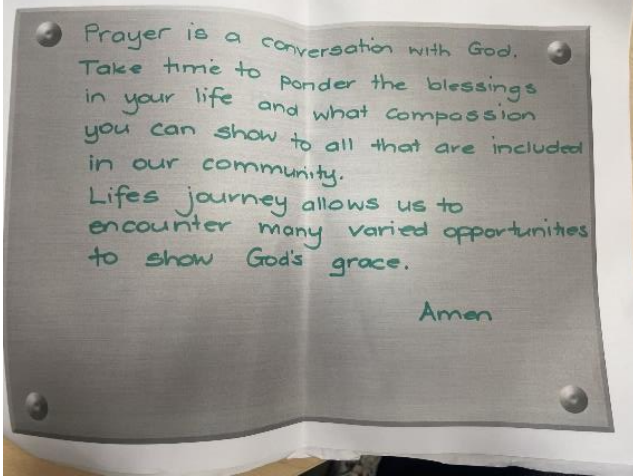 Prayer is a conversation with God.
Take time to ponder the blessings
in your life and what compassion
you can show to all that are included
in our community.
Lifes journey allows us to
encounter many varied opportunities
to show God's grace.
Amen